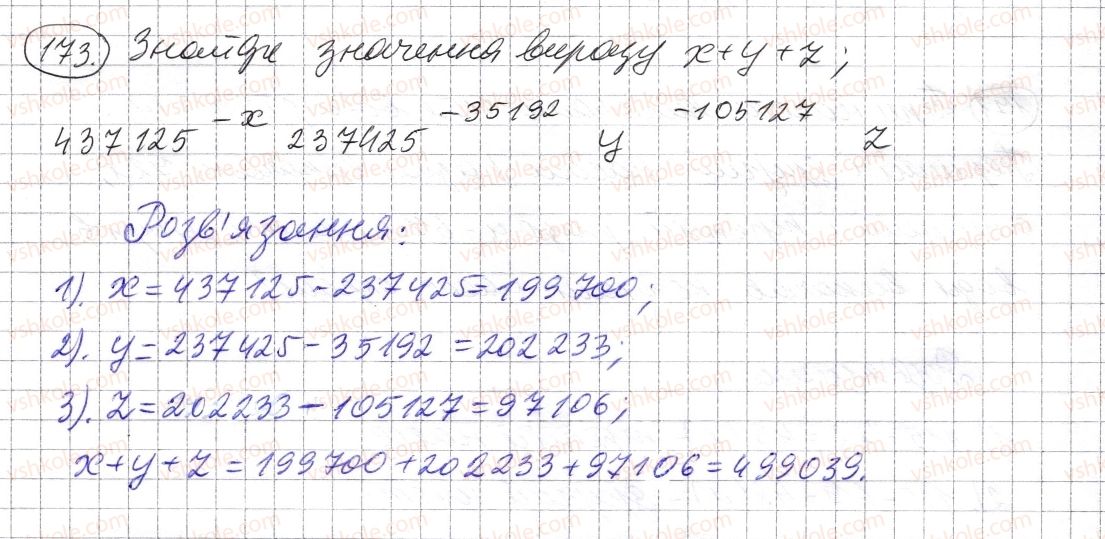 173. Знайди значення виразу x+y+z;
437125 -x 237425 -35192 y -105127 z
Розв'язання:
1). x=437125-237425=199700;
2). y=237425-35192=202233;
3). z=202233-105127=97106;
x+y+z=199700+202233+97106=499039.
vshkole.com